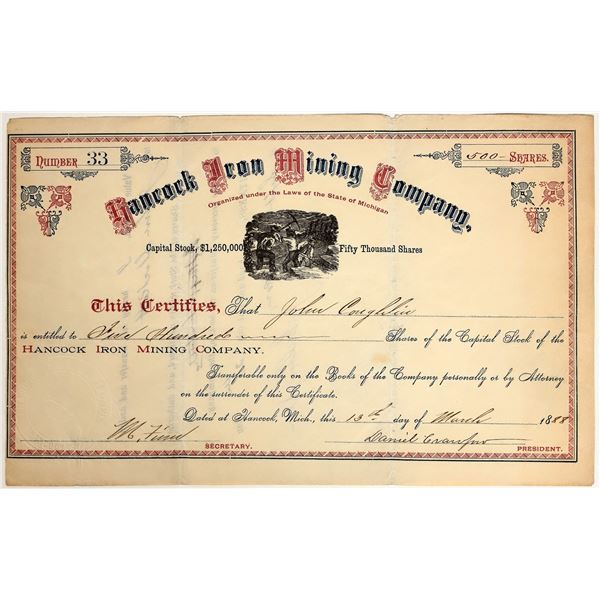 NUMBER 33
500- SHARES.
Hancock Iron Mining Company,
Organized under the Laws of the State of Michigan
Capital Stock, $1,250,000 Fifty Thousand Shares
This Certifies, That John Coughlin
is entitled to Five Hundred Shares of the Capital Stock of the
HANCOCK IRON MINING COMPANY.
Transferable only on the Books of the Company personally or by Attorney
on the surrender of this Certificate.
Dated at Hancock, Mich., this 13th day of March 1888
M. Finn Daniel Crawford
SECRETARY. PRESIDENT.